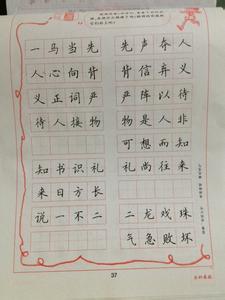 一马当先 先声夺人
人心向背 背信弃义
义正词严 严阵以待
待人接物 物是人非
可想而知
知书识礼 礼尚往来
来日方长
说一不二 二龙戏珠
气急败坏
37